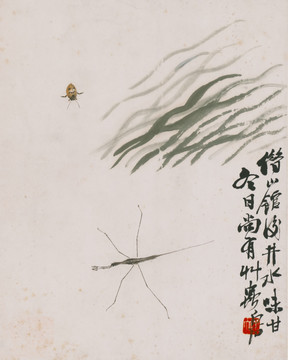 借山館後井水味甘
冬日尚有艸蟲